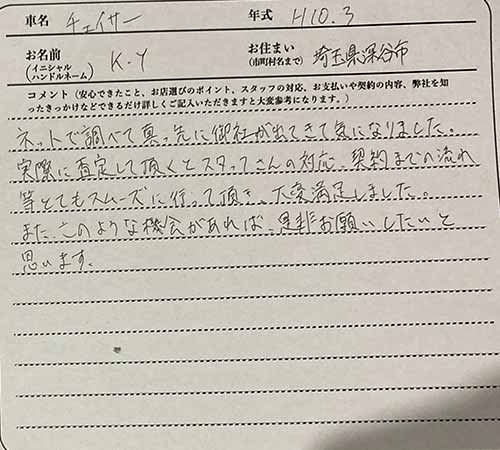 車名 チェイサー 年式 H10.3
お名前 (イニシャル ハンドルネーム) K.Y お住まい (市町村名まで) 埼玉県深谷市
コメント(安心できたこと、お店選びのポイント、スタッフの対応、お支払いや契約の内容、弊社を知
ったきっかけなどできるだけ詳しくご記入いただきますと大変参考になります。)
ネットで調べて真っ先に御社が出てきて気になりました。
実際に査定して頂くとスタッフさんの対応、契約までの流れ
等とてもスムーズに行って頂き、大変満足しました。
また、このような機会があれば、是非お願いしたいと
思います。